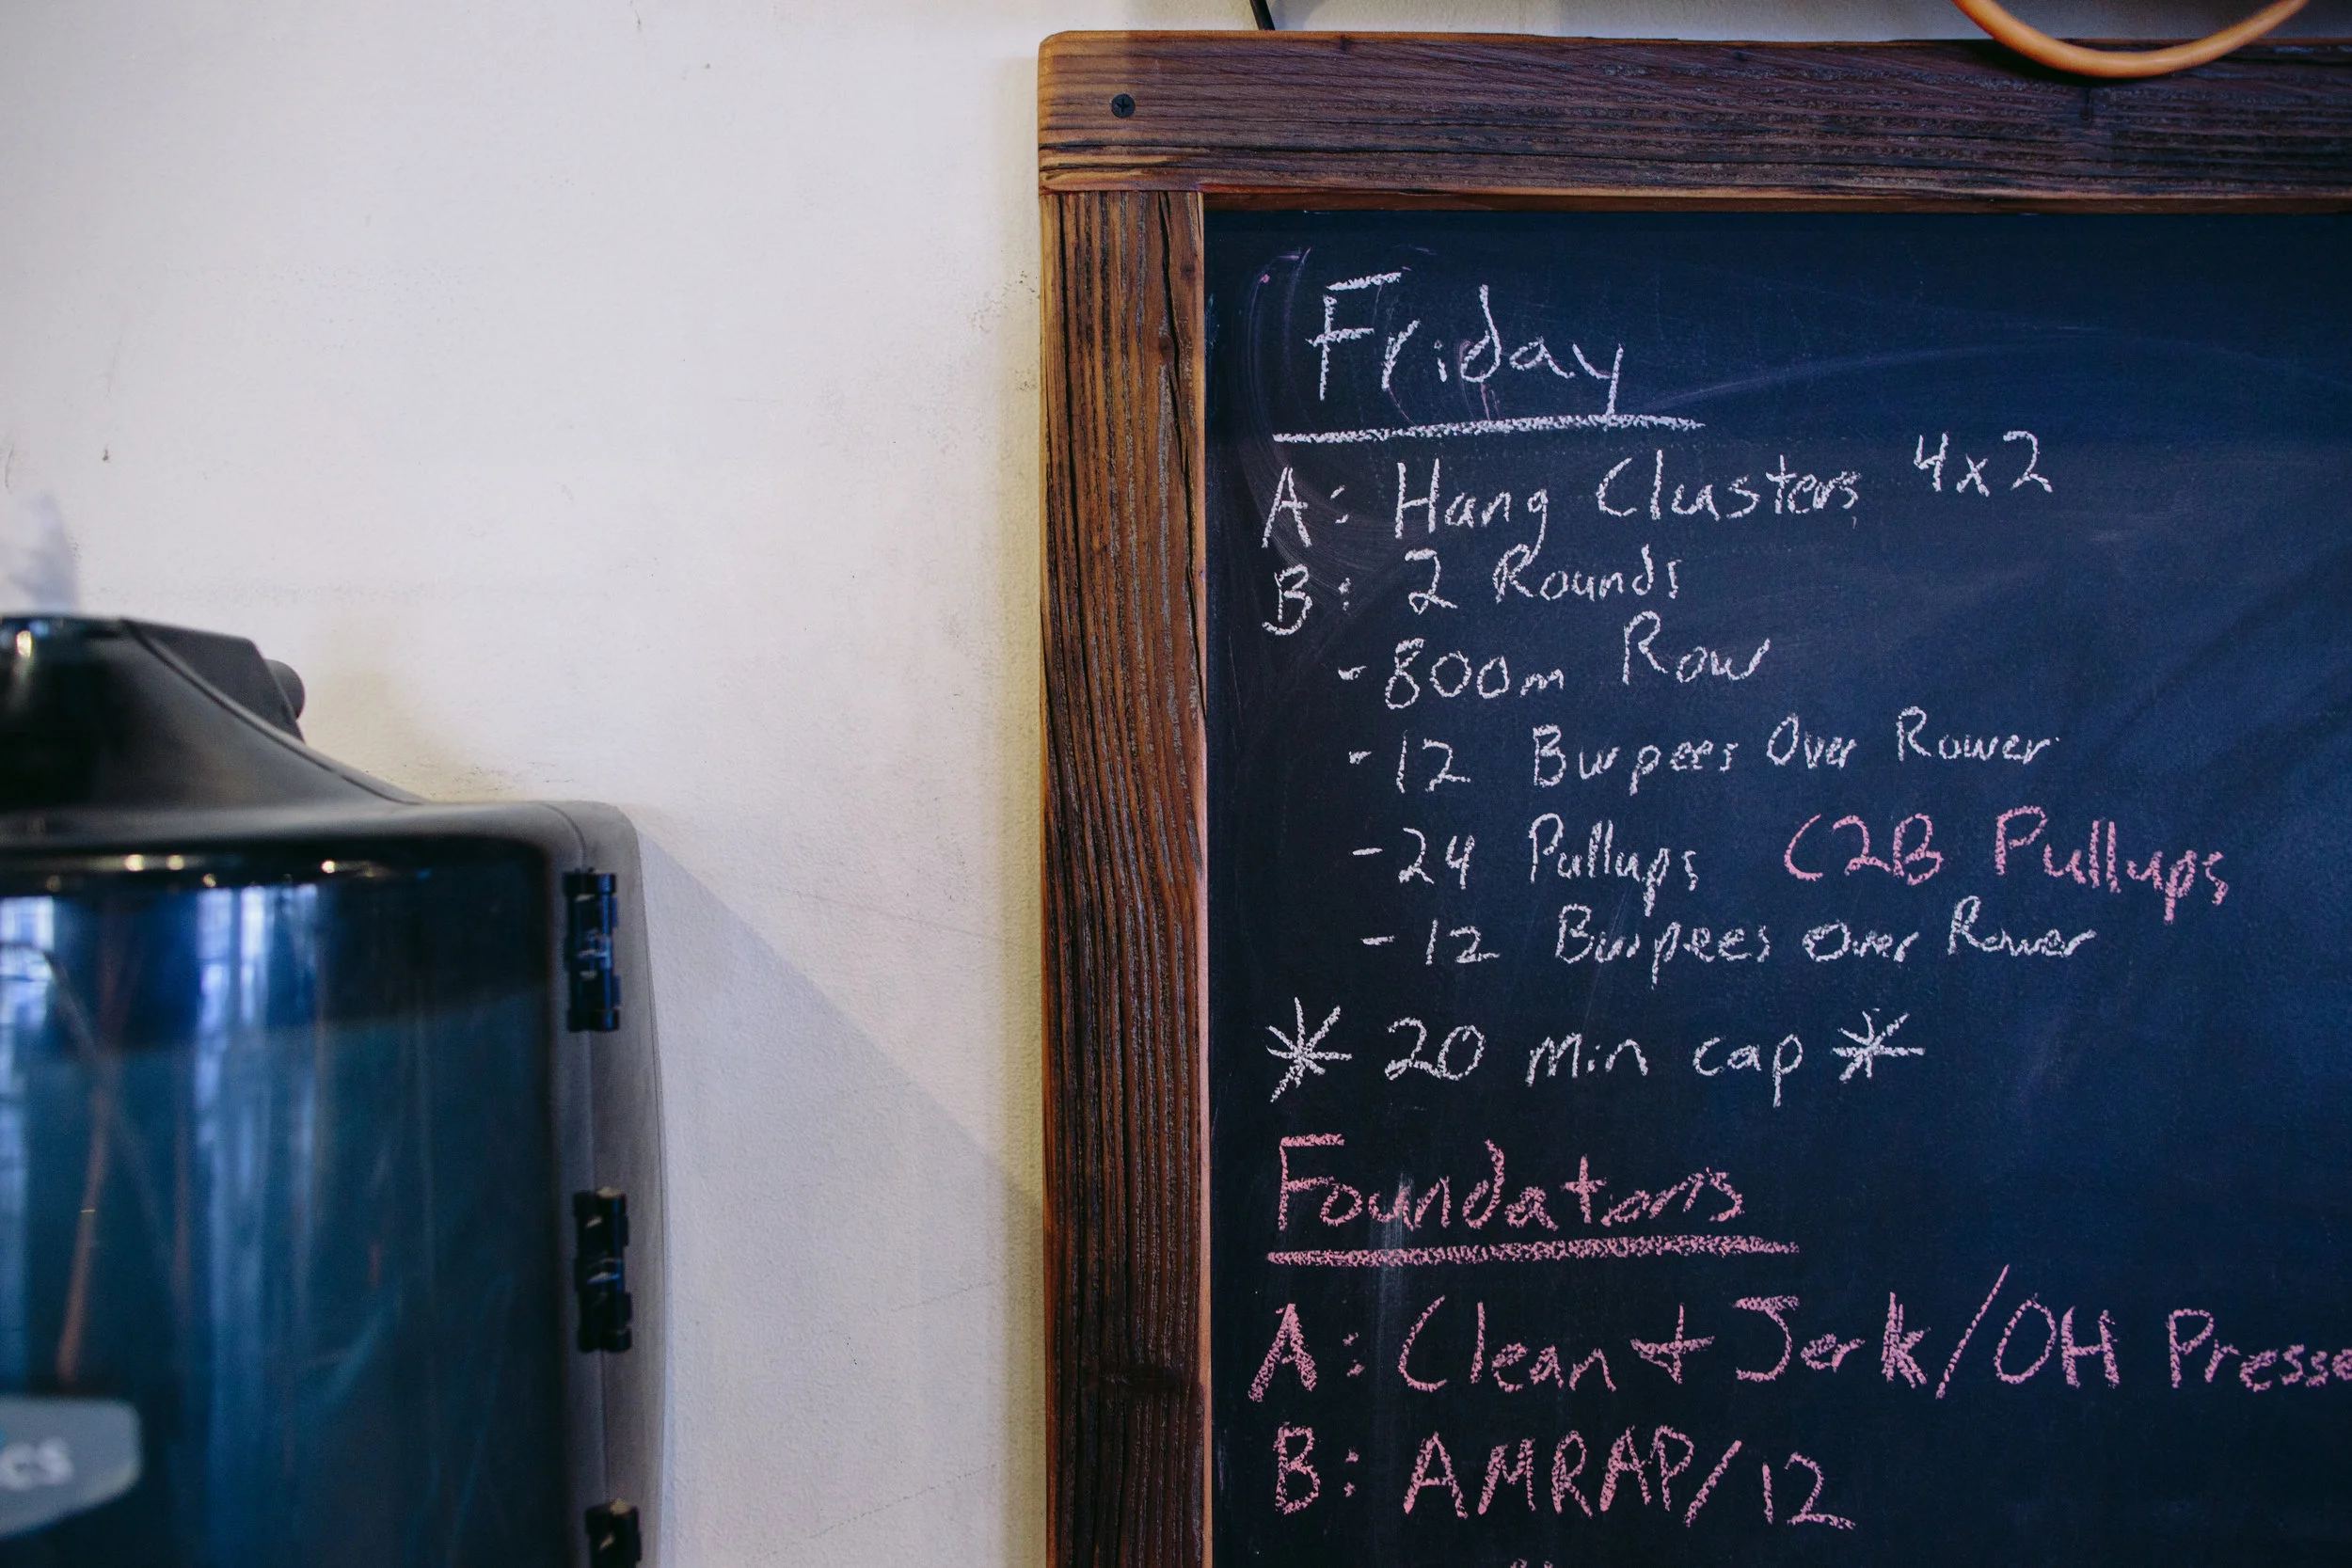 Friday
A: Hang Clusters 4x2
B: 2 Rounds
- 800m Row
- 12 Burpees Over Rower
- 24 Pullups C2B Pullups
- 12 Burpees Over Rower
* 20 min cap *
Foundations
A: Clean + Jerk/OH Presse
B: AMRAP/12
cs